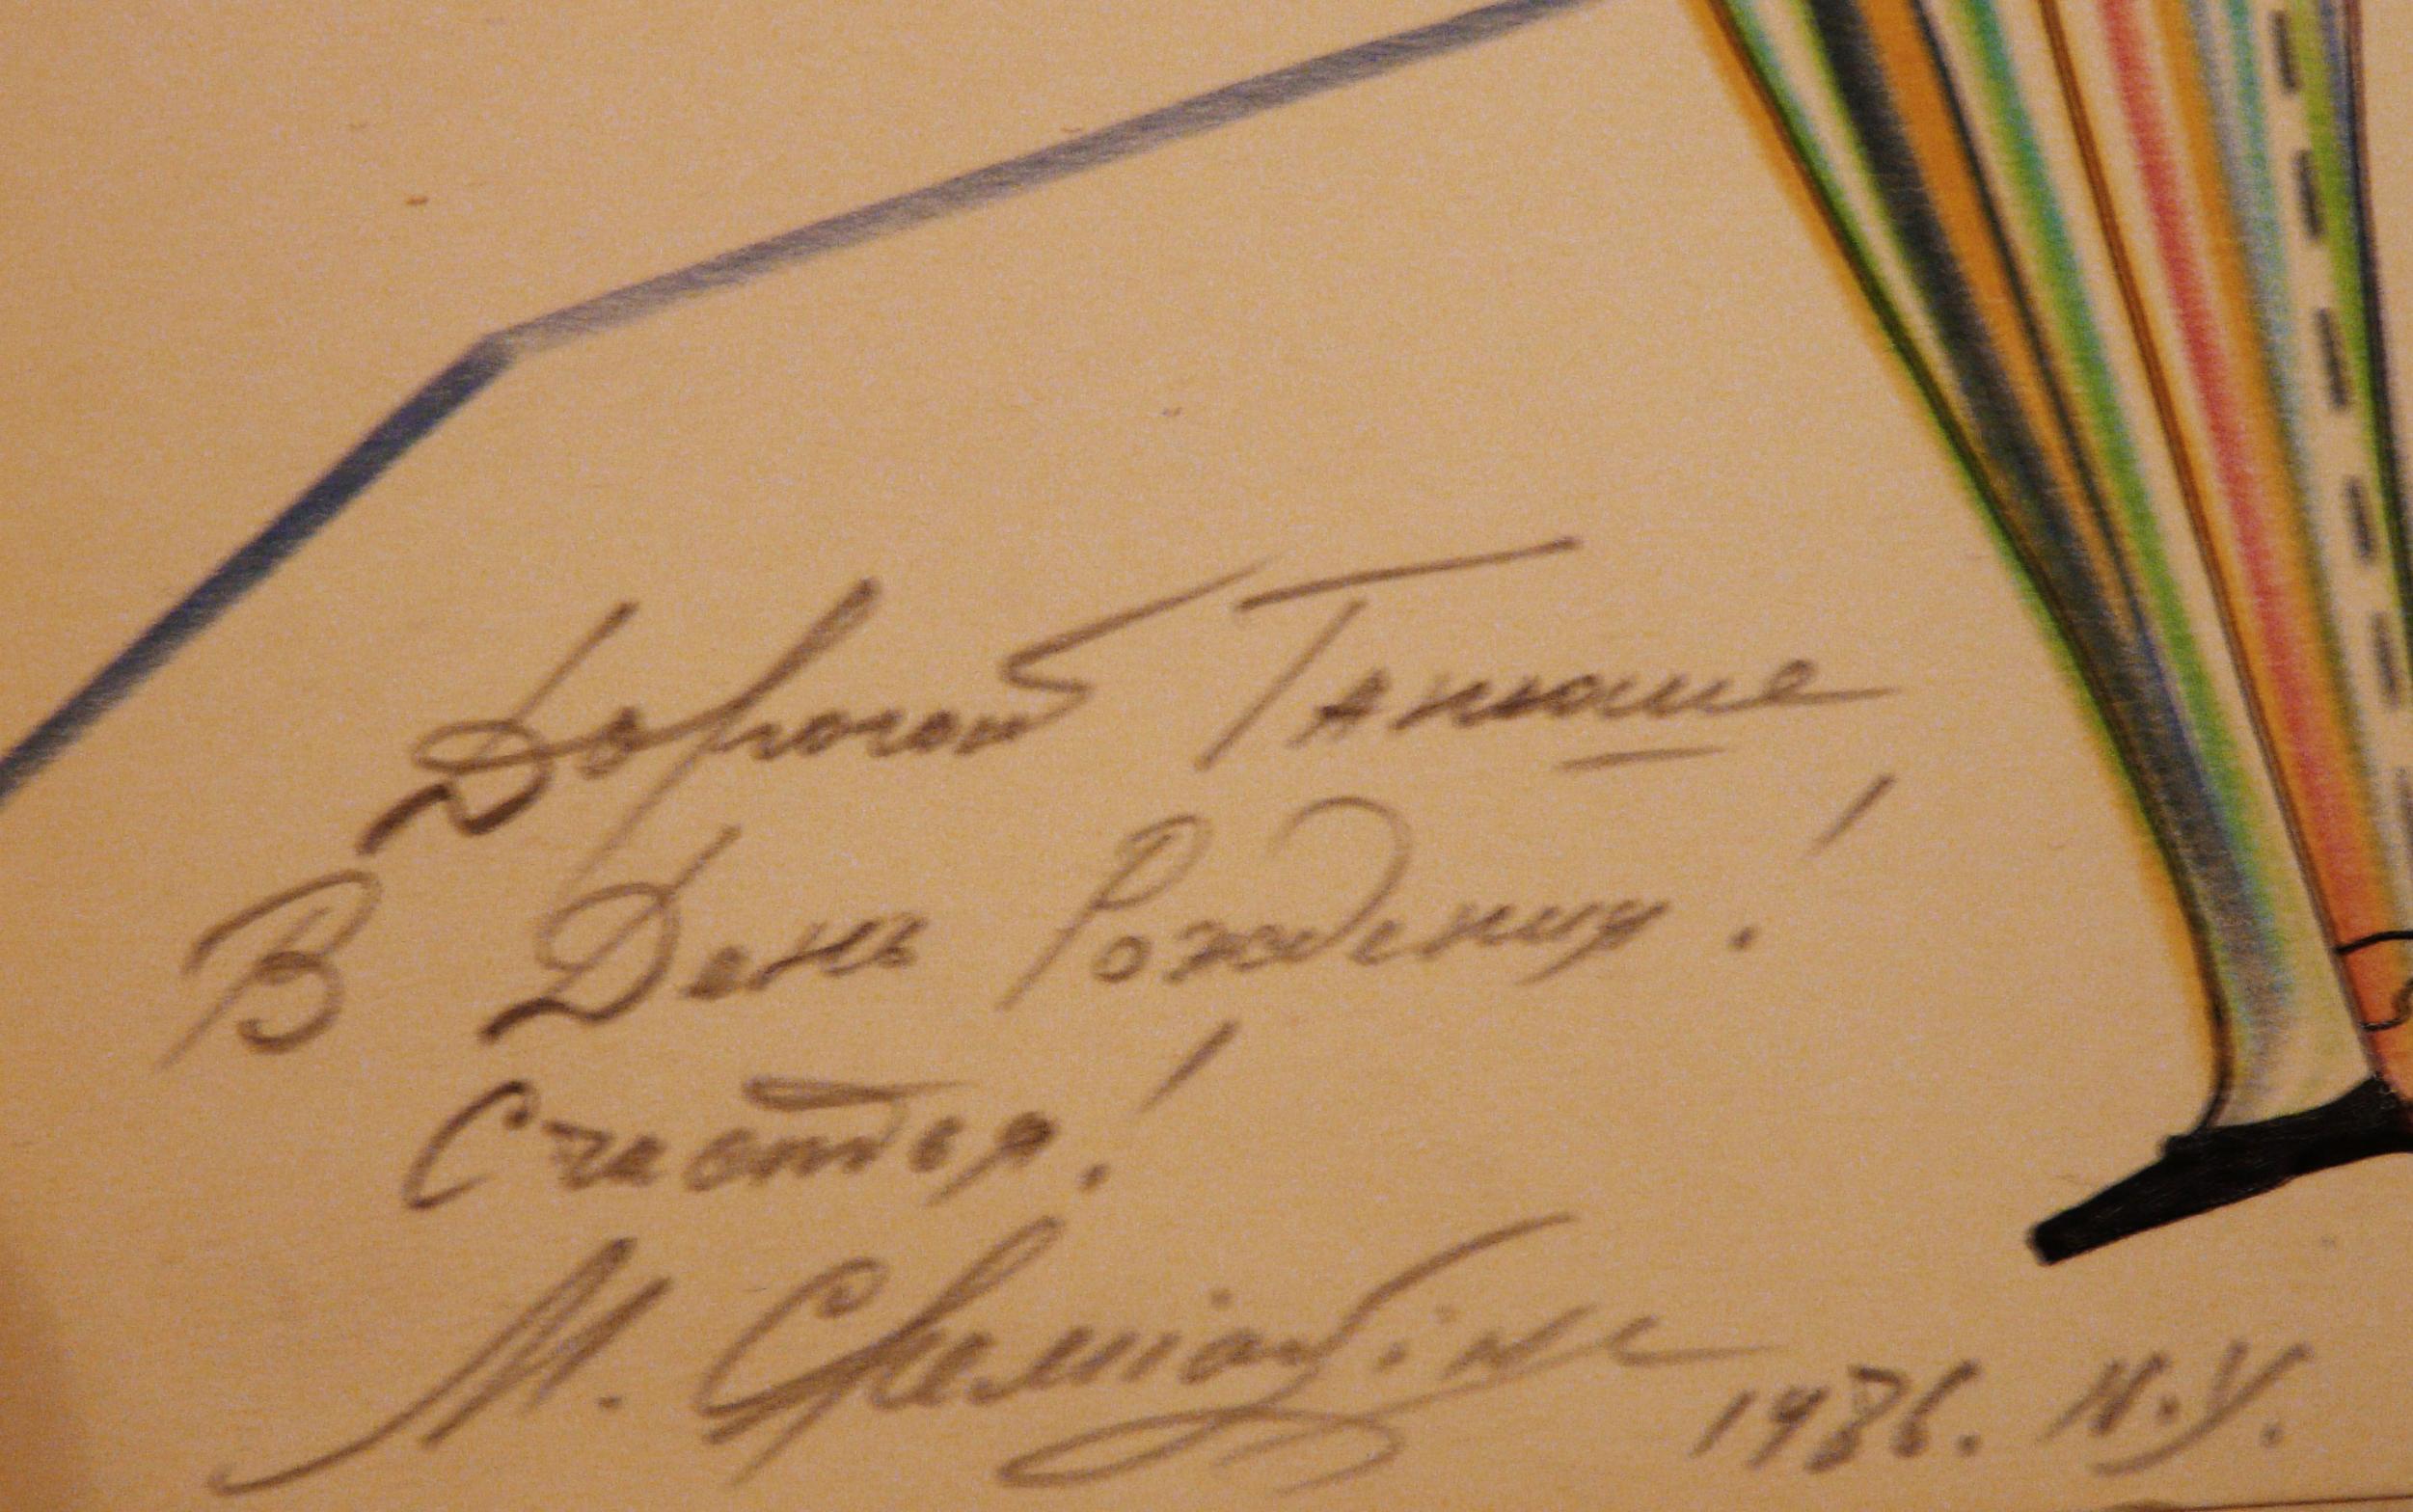 Дорогой Танюше
В День Рождения!
Счастья!
М.
1986. N.Y.